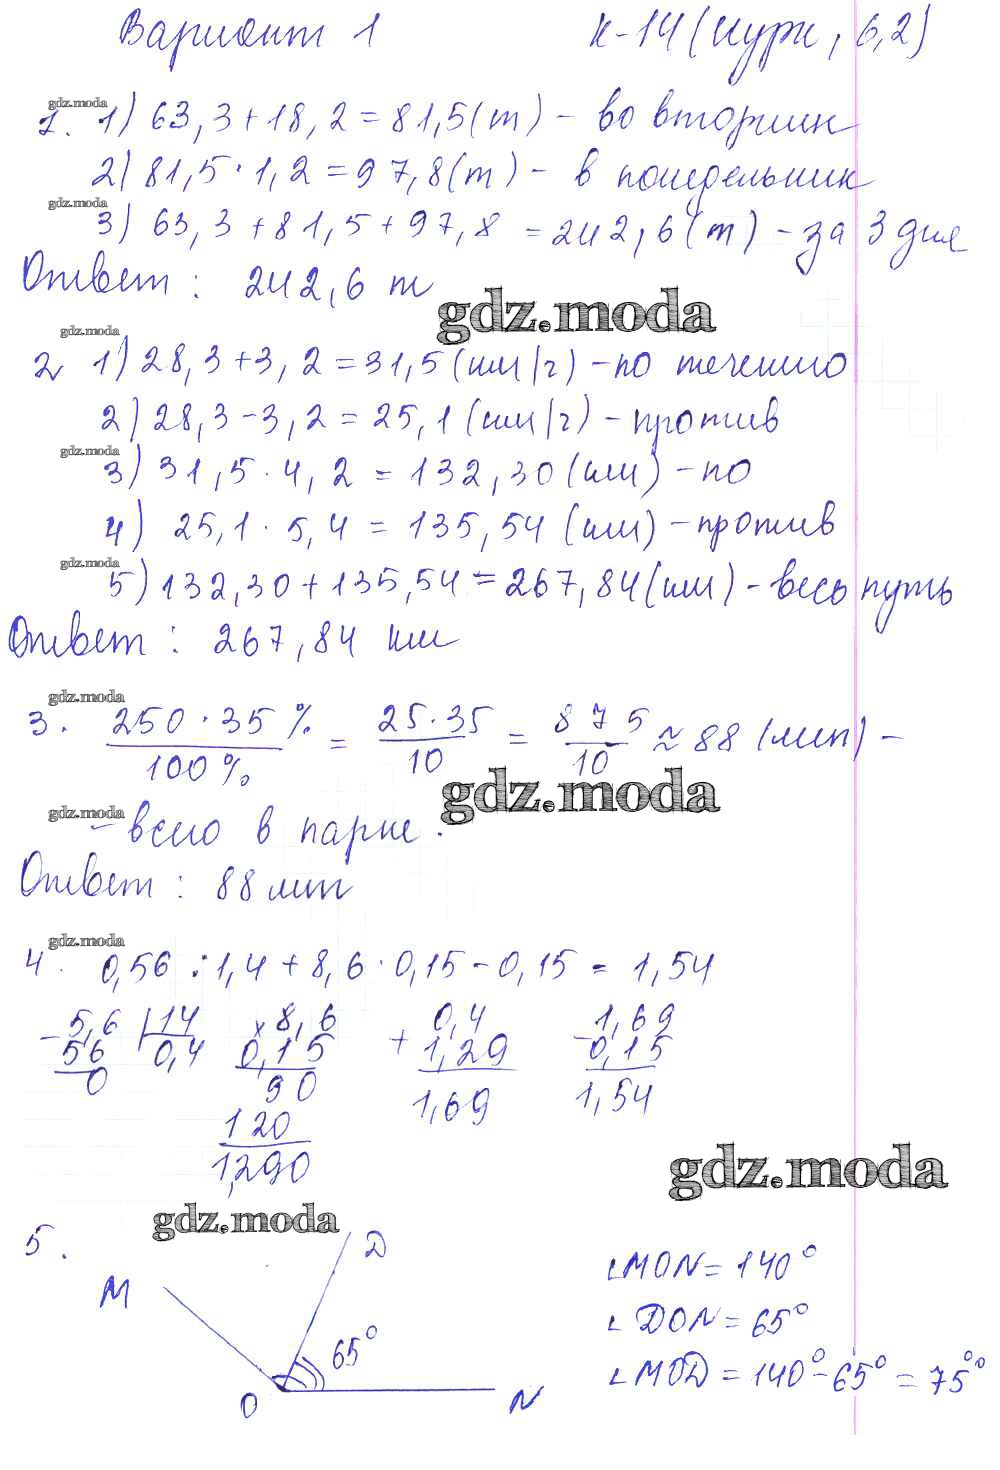 Вариант 1 К-14 (курк, 6,2)
gdz.moda
1. 1) 63,3+18,2=81,5(т) - во вторник
2) 81,5·1,2=97,8(т) - в понедельник
gdz.moda
3) 63,3+81,5+97,8=242,6(т) - за 3 дня
Ответ: 242,6 т
gdz.moda
gdz.moda
2. 1) 28,3+3,2=31,5(км/ч) - по течению
2) 28,3-3,2=25,1(км/ч) - против
gdz.moda
3) 31,5·4,2=132,30(км) - по
4) 25,1·5,4=135,54(км) - против
gdz.moda
5) 132,30+135,54=267,84(км) - весь путь
Ответ: 267,84 км
gdz.moda
3. 250·35% / 100% = 25·35 / 10 = 875 / 10 ≈ 88 (лип) -
gdz.moda
gdz.moda
- всего в парке.
Ответ: 88 лип
gdz.moda
4. 0,56:1,4+8,6·0,15-0,15=1,54
- 5,6 | 14 × 8,6 0,4 1,69
56 0,4 0,15 + 1,29 - 0,15
0 90 1,69 1,54
120
1,290
gdz.moda
gdz.moda
5. D
M
65°
O N
∠MON=140°
∠DON=65°
∠MOD=140°-65°=75°